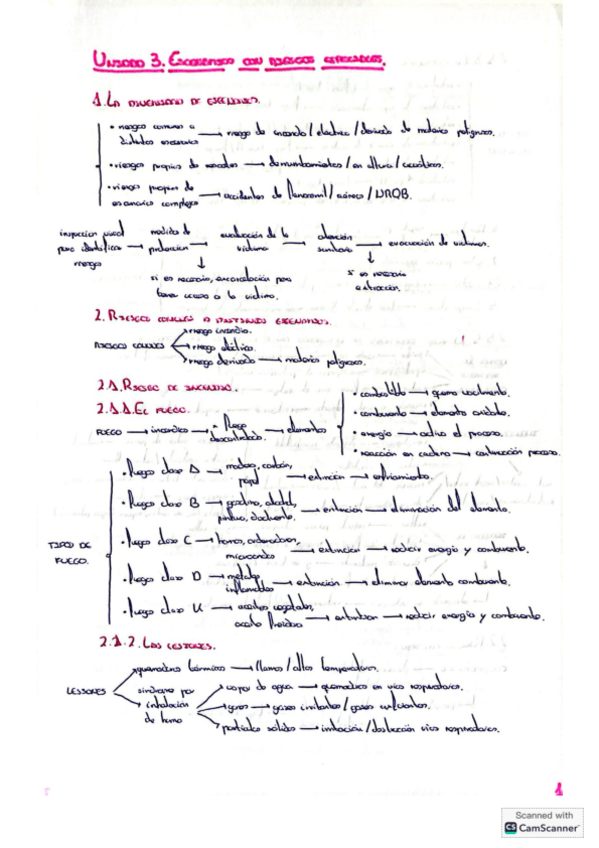 UNIDAD 3. ESCENARIOS CON RIESGOS ESPECIALES.
1. LA DIVERSIDAD DE ESCENARIOS.
• riesgos comunes a distintos escenarios → riesgo de incendio / eléctrico / derivado de materias peligrosas.
• riesgos propios de → derrumbamientos / en altura / acuáticos.
• riesgos propios de escenarios complejos → accidentes de ferrocarril / aéreos / NRQB.
inspección visual para identificar riesgos → medidas de protección → evaluación de la víctima → atención sanitaria → evacuación de víctimas.
↓ si es necesario, excarcelación para tener acceso a la víctima.
↓ si es necesario extracción.
2. RIESGOS COMUNES A DISTINTOS ESCENARIOS.
RIESGOS COMUNES
riesgo incendio.
riesgo eléctrico.
riesgo derivado → materias peligrosas.
2.1. RIESGO DE INCENDIO.
2.1.1. EL FUEGO.
FUEGO → incendio → fuego descontrolado. → elementos
• combustible → quema
• comburente → elemento oxidante.
• energía → activa el proceso.
• reacción en cadena → continuación proceso.
TIPOS DE FUEGO.
• fuego clase A → madera, carbón, papel → extinción → enfriamiento.
• fuego clase B → gasolina, alcohol, pintura, → extinción → eliminación del elemento.
• fuego clase C → hornos, ordenadores, microondas → extinción → reducir energía y comburente.
• fuego clase D → metales inflamables → extinción → eliminar elemento comburente.
• fuego clase K → aceites vegetales, → extinción → reducir energía y comburente.
2.1.2. LAS LESIONES.
LESIONES
quemadura térmica → llamas / altas temperaturas.
síndrome por inhalación de humo
vapor de agua → quemadura en vías respiratorias.
gases → gases irritantes / gases asfixiantes.
partículas sólidas → irritación / obstrucción vías respiratorias.
1
Scanned with
CS CamScanner